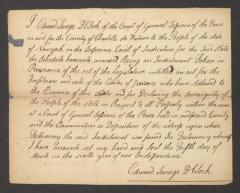 I Edward Savage D Clerk of the Court of General Sessions of the Peace
in and for the County of Charlotte do Return to the People of the State
of New york in the Supreme Court of Judicature for the said State
the Schedule hereunto annexed Being an Indictment Taken in
Pursuance of the act of the Legislature entitled an act for the
Forfeiture and sale of the Estates of persons who have adhered to the
Enemies of this State and for Declaring the Sovereignty of the
People of the State in Respect to all Property within the same
at a Court of General Sessions of the Peace held in and for said County
and the Examination or Deposition of the witness upon whose
Testimony the said Indictment was found In Testimony whereof
I have hereunto set my hand and Seal the fifth day of
March in the sixth year of our Independence
Edward Savage D Clerk